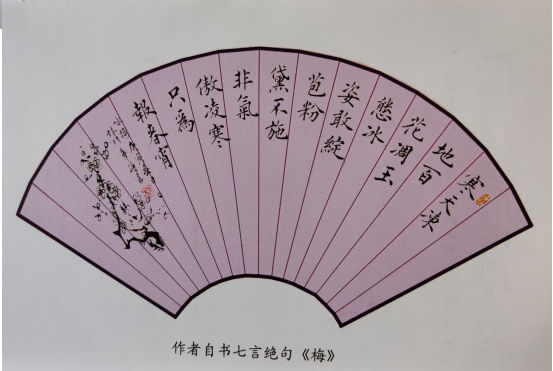 寒天凍
地百
花凋玉
態冰
姿敢綻
苞粉
黛不施
非氣
傲凌寒
只為
報春宵
作者自书七言绝句《梅》